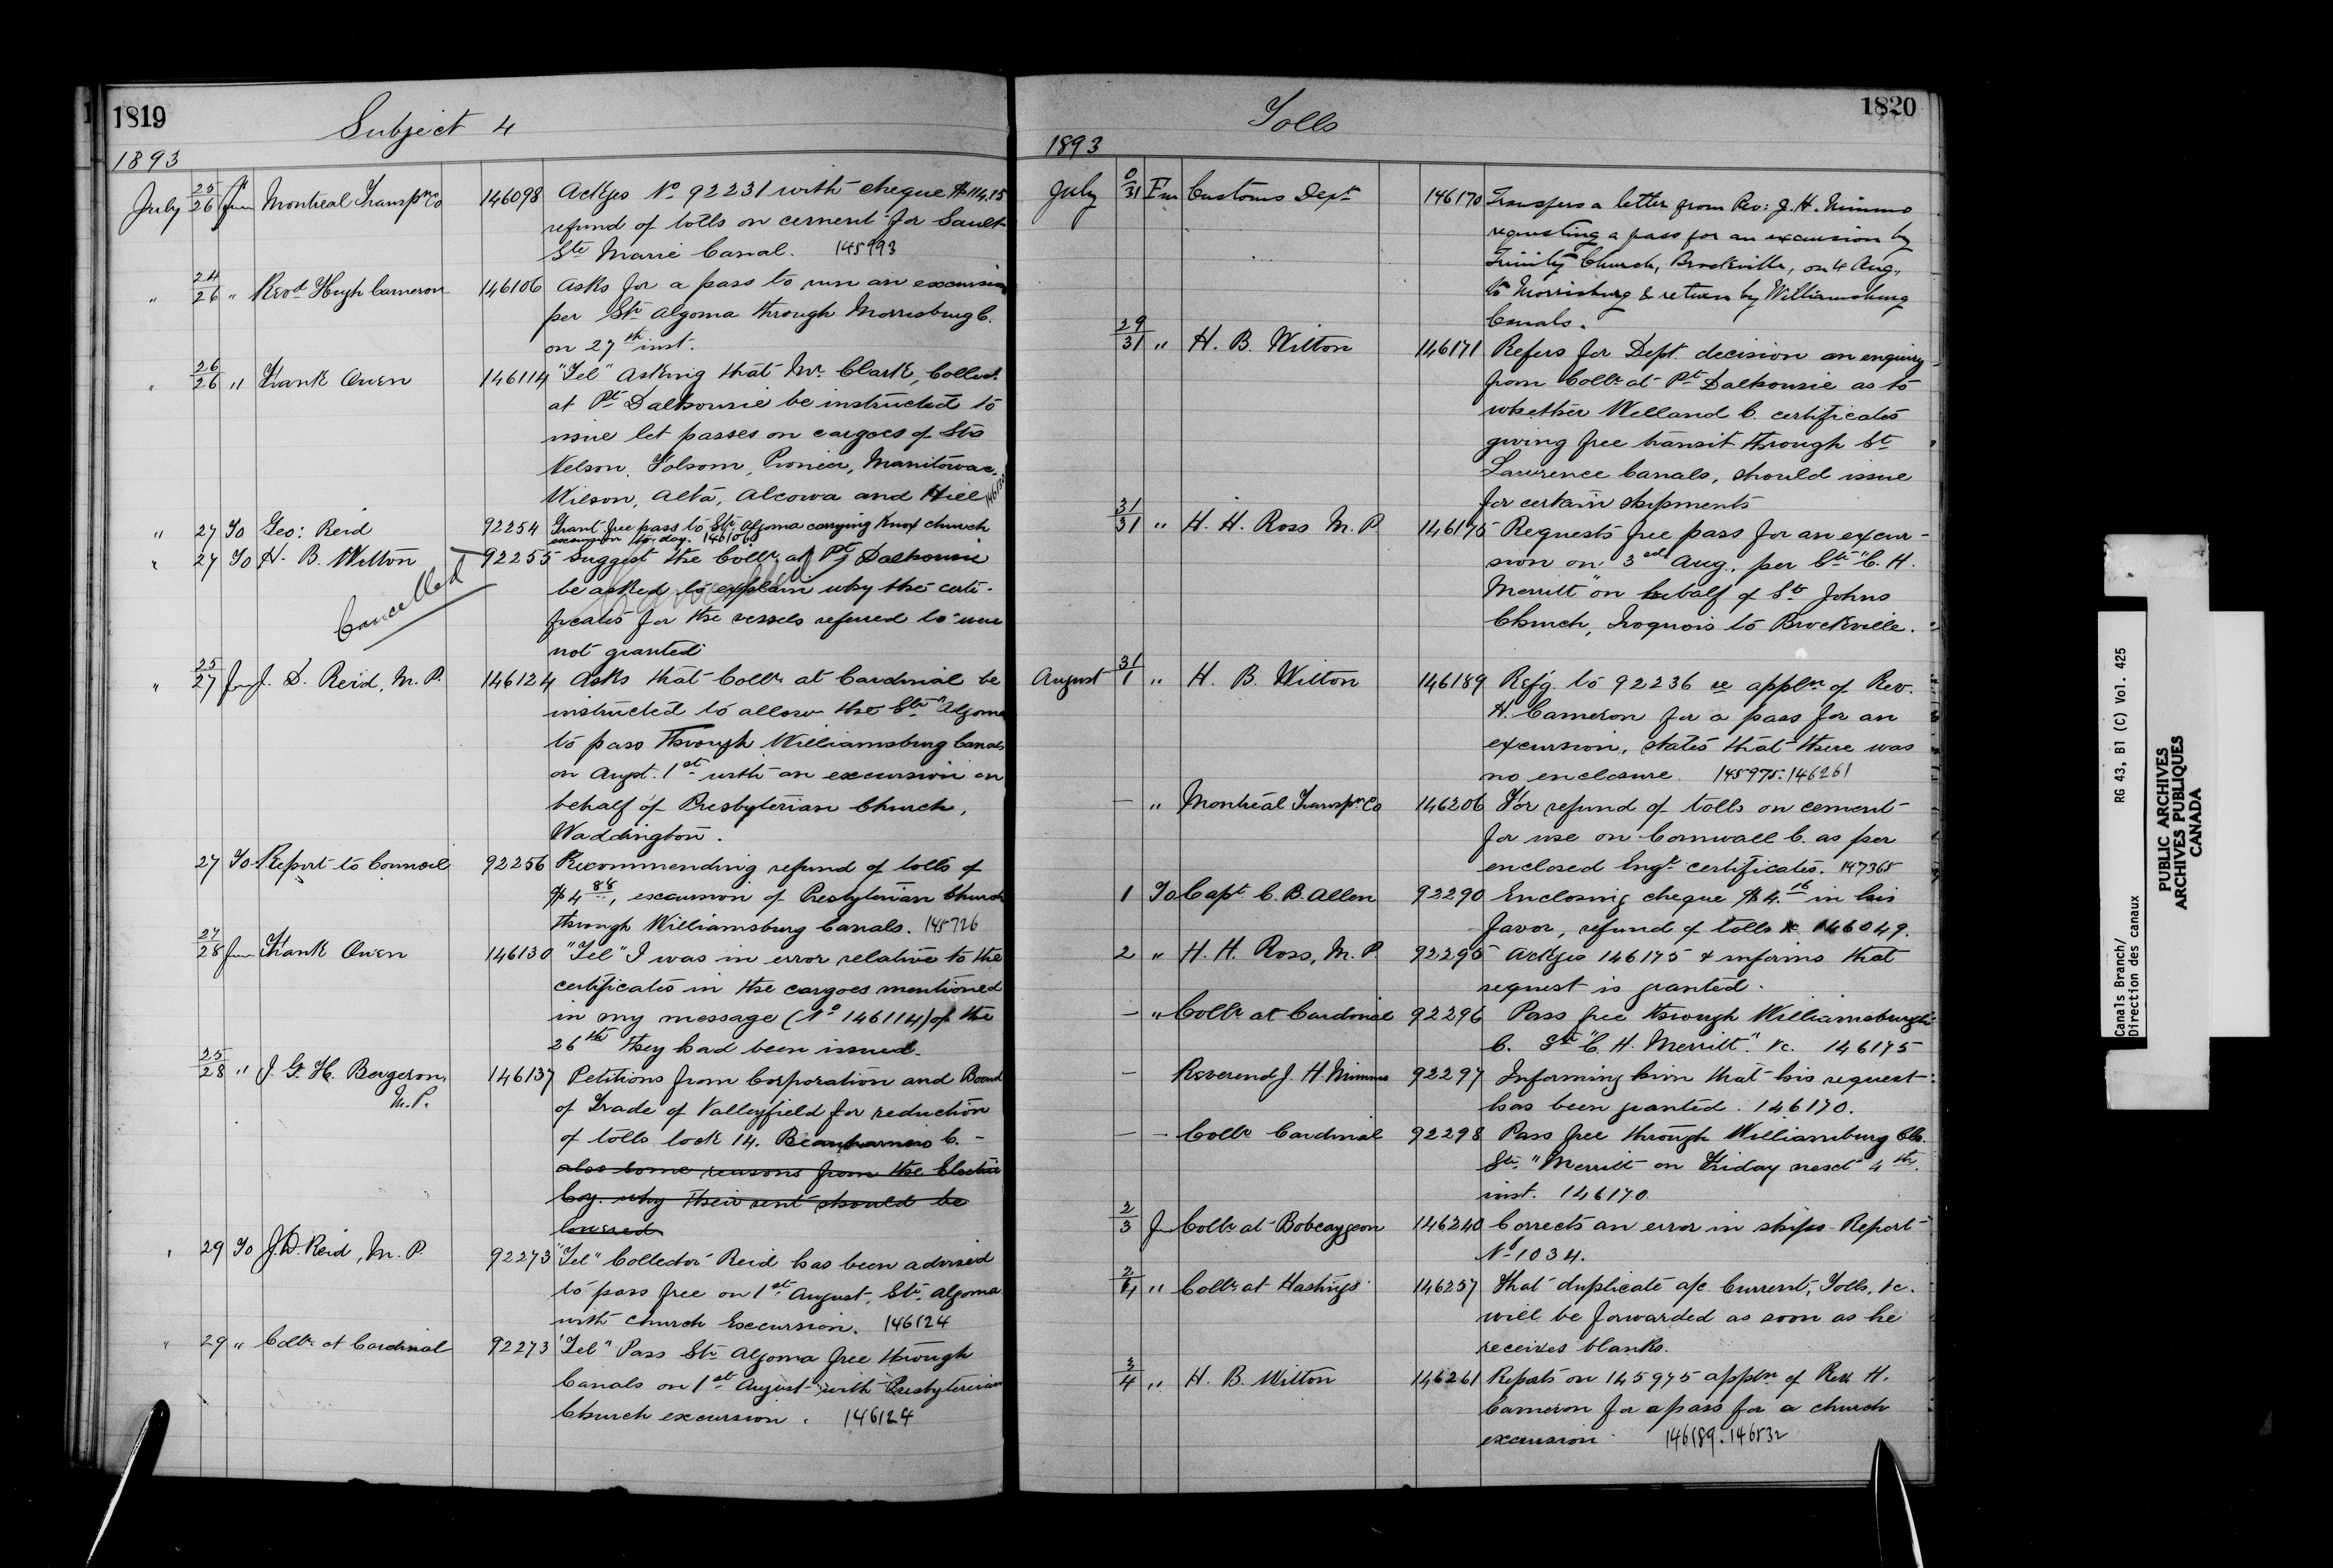 1819
Subject 4
1893
July 25/26 fm Montreal Transpn Co 146098 Ackges No 92231 with cheque $114.15
refund of tolls on cement for Sault
Ste Marie Canal. 145993
" 24/26 " Revd Hugh Cameron 146106 Asks for a pass to run an excursion
per Str Algoma through Morrisburg C.
on 27th inst.
" 26/26 " Frank Owen 146114 "Tel" Asking that Mr. Clark, Collect.
at Pt Dalhousie be instructed to
issue let passes on cargoes of Strs
Nelson, Folsom, Pioneer, Manitowac,
Wilson, Alta, Alcowa and Hill
" 27 To Geo: Reid 92254 Grant free pass to Str. Algoma carrying Knox church
excursion to-day. 146106
" 27 To H. B. Witton 92255 Suggest the Collr at Pt Dalhousie
be asked to explain why the certi-
ficates for the vessels referred to were
not granted
Cancelled
" 25/27 fm J. D. Reid, M.P. 146124 Asks that Collr at Cardinal be
instructed to allow the Str "Algoma
to pass through Williamsburg Canals
on Augst. 1st with an excursion on
behalf of Presbyterian Church,
Waddington.
27 To Report to Council 92256 Recommending refund of tolls of
$4 88, excursion of Presbyterian Church
through Williamsburg Canals. 145726
27/28 fm Frank Owen 146130 "Tel" I was in error relative to the
certificates in the cargoes mentioned
in my message (No 146114) of the
26th they had been issued.
25/28 " J. G. H. Bergeron, 146137 Petitions from Corporation and Board
M.P.
of Trade of Valleyfield for reduction
of tolls lock 14. Beauharnois C. -
also some reasons from the Electric
Coy. why their rent should be
lowered
" 29 To J. D. Reid, M.P. 92273 "Tel" Collector Reid has been advised
to pass free on 1st August, Str. Algoma
with church Excursion. 146124
" 29 " Collr at Cardinal 92273 "Tel" Pass Str Algoma free through
Canals on 1st August with Presbyterian
Church excursion. 146124
1820
Tolls
1893
July 0/31 Fm Customs Dept 146170 Transfers a letter from Rev: J. H. Nimmo
requesting a pass for an excursion by
Trinity Church, Brockville, on 4 Aug.,
to Morrisburg & return by Williamsburg
Canals.
29/31 " H. B. Witton 146171 Refers for Dept. decision an enquiry
from Collr at Pt Dalhousie as to
whether Welland C. certificates
giving free transit through St
Lawrence Canals, should issue
for certain shipments
31/31 " H. H. Ross M.P. 146175 Requests free pass for an excur-
sion on 3rd Aug., per Str "C. H.
Merritt" on behalf of St Johns
Church, Iroquois to Brockville.
August 31/1 " H. B. Witton 146189 Refg. to 92236 re appln of Rev.
H. Cameron for a pass for an
excursion, states that there was
no enclosure. 145975. 146261
— " Montreal Transpn Co 146206 For refund of tolls on cement
for use on Cornwall C. as per
enclosed Engr certificates. 147365
1 To Capt C. B. Allen 92290 Enclosing cheque $4. 16 in his
favor, refund of tolls &c 146049.
2 " H. H. Ross, M.P. 92295 Ackges 146175 & informs that
request is granted.
— " Collr at Cardinal 92296 Pass free through Williamsburgh
C. Str "C. H. Merritt." &c. 146175
— Reverend J. H. Nimmo 92297 Informing him that his request
has been granted. 146170.
— — Collr Cardinal 92298 Pass free through Williamsburg Cls.
Str. "Merritt on Friday next 4th
inst. 146170.
2/3 fm Collr at Bobcaygeon 146240 Corrects an error in ships Report
No 1034.
2/4 " Collr at Hastings 146257 That duplicate a/c Current, Tolls, &c.
will be forwarded as soon as he
receives blanks.
3/4 " H. B. Witton 146261 Reports on 145975 appln of Rev. H.
Cameron for a pass for a church
excursion 146189. 146532
Canals Branch/ RG 43, B1 (C) Vol. 425
Direction des canaux
PUBLIC ARCHIVES
ARCHIVES PUBLIQUES
CANADA